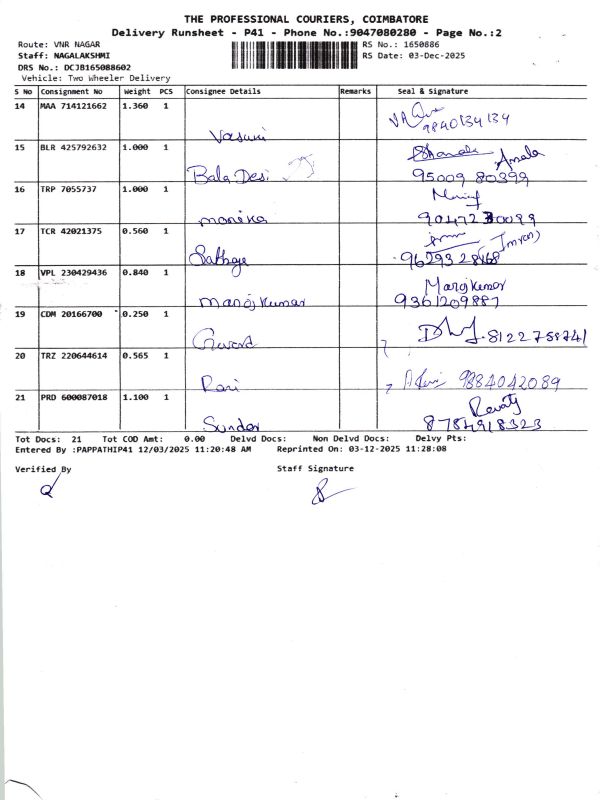 THE PROFESSIONAL COURIERS, COIMBATORE
Delivery Runsheet - P41 - Phone No.:9047080280 - Page No.:2
Route: VNR NAGAR RS No.: 1650886
Staff: NAGALAKSHMI RS Date: 03-Dec-2025
DRS No.: DCJB165088602
Vehicle: Two Wheeler Delivery
S No Consignment No Weight PCS Consignee Details Remarks Seal & Signature
14 MAA 714121662 1.360 1
9840134134
Vasuki
15 BLR 425792632 1.000 1
Amala
Bala Desi 95009 80399
16 TRP 7055737 1.000 1
monika
17 TCR 42021375 0.560 1
Imran)
18 VPL 230429436 0.840 1 Manojkumar
manoj kumar 9361209887
19 CDM 20166700 0.250 1
8122758741
20 TRZ 220644614 0.565 1
Rani 9884042089
21 PRD 600087018 1.100 1 Revathy
Sundar 8784918323
Tot Docs: 21 Tot COD Amt: 0.00 Delvd Docs: Non Delvd Docs: Delvy Pts:
Entered By :PAPPATHIP41 12/03/2025 11:20:48 AM Reprinted On: 03-12-2025 11:28:08
Verified By Staff Signature